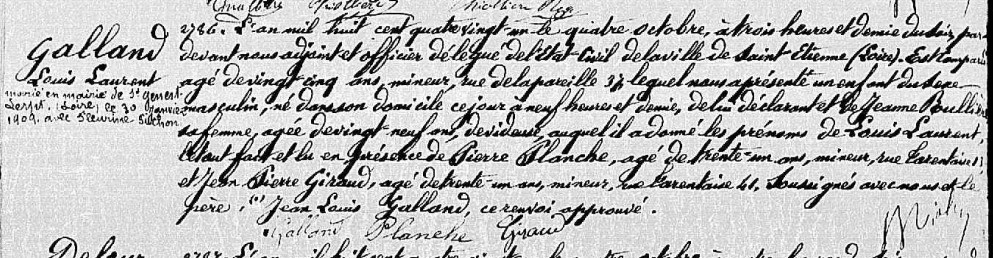 Galland
Louis Laurent
marié en mairie de St Genest
Lerpt (Loire) le 30 Janvier
1909 avec
2786. L'an mil huit cent quatre vingt-un le quatre octobre, à trois heures et demie du soir, par
devant nous adjoint et officier délégué de l'Etat-civil de la ville de Saint Etienne (Loire). Est comparu
agé de vingt cinq ans, mineur, rue de lapareille 37 lequel nous a présenté un enfant du sexe
masculin, né dans son domicile ce jour à neuf heures et demie, de lui déclarant et de Jeanne Soullier
sa femme, agée de vingt-neuf ans, devideuse, auquel il a donné les prénoms de Louis Laurent
le tout fait et lu en présence de Pierre Planche, agé de trente-un ans, mineur, rue Tarentaize
et Jean Pierre Giraud, agé de trente-un ans, mineur, rue Tarentaize 41, Soussignés avec nous et le
père. Jean Louis Galland, ce renvoi approuvé.
Galland Planche Giraud